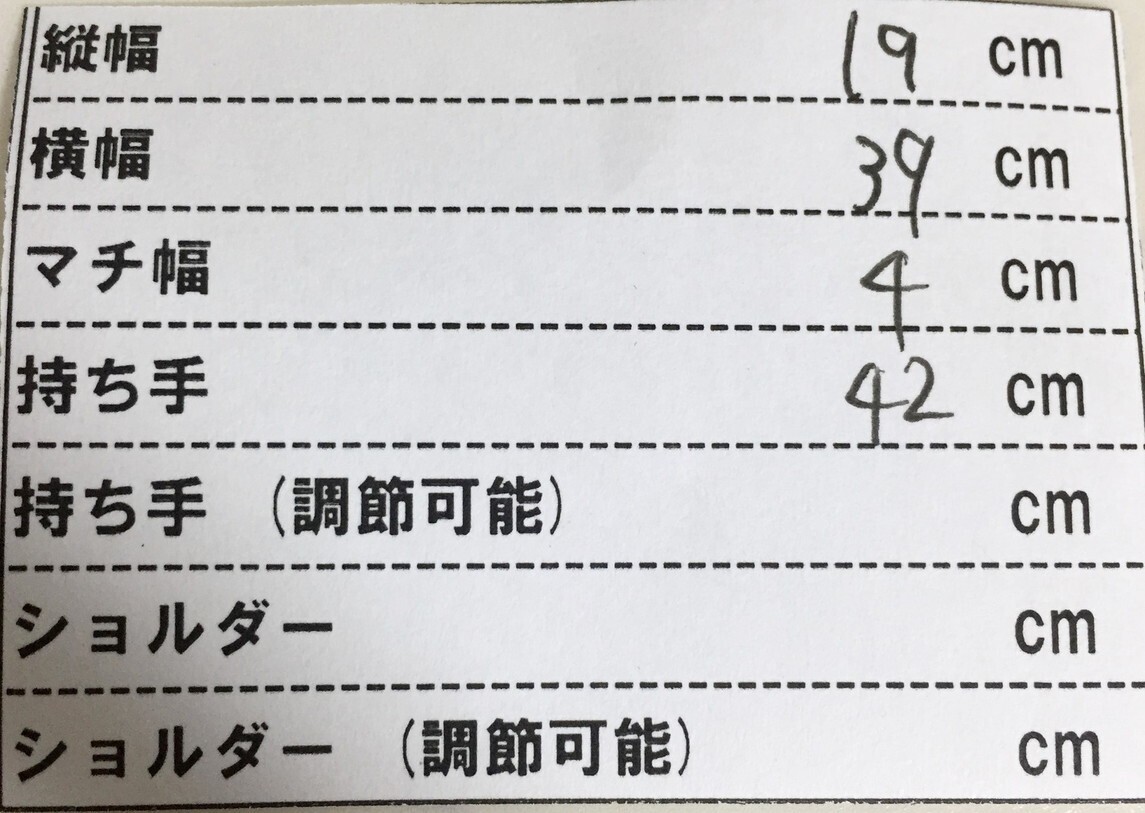 縦幅 19 cm
横幅 39 cm
マチ幅 4 cm
持ち手 42 cm
持ち手 (調節可能) cm
ショルダー cm
ショルダー (調節可能) cm